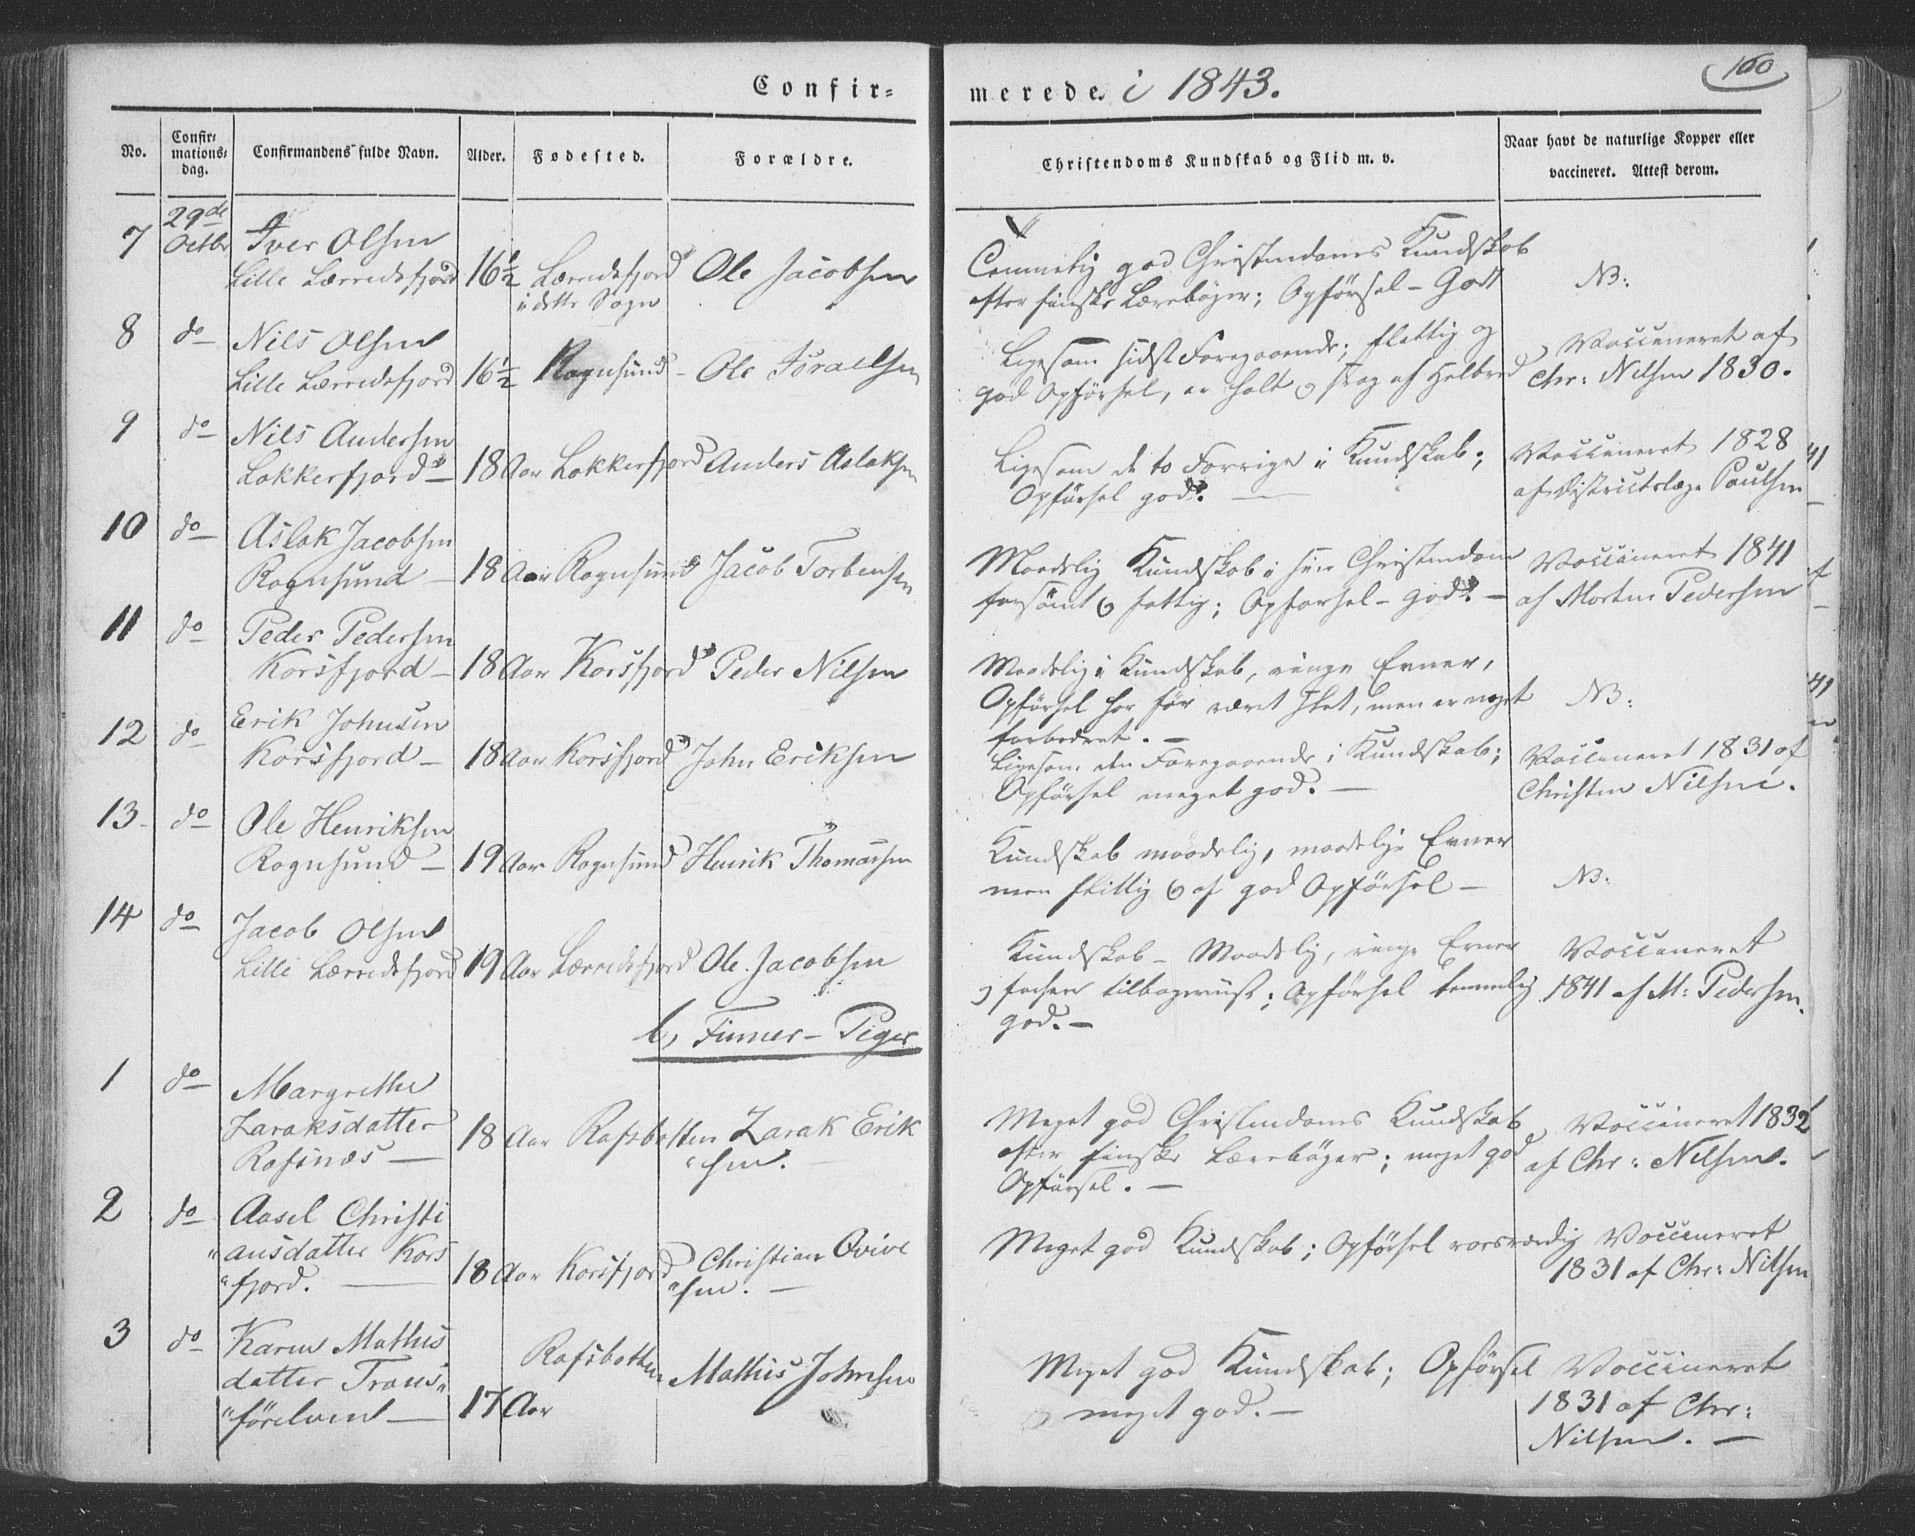 160
Confir-
merede. i 1843.
No.
Confir-
mations-
dag.
Confirmandens fulde Navn.
Alder.
Fødested.
Forældre.
Christendoms Kundskab og Flid m. v.
Naar havt de naturlige Kopper eller
vaccineret. Attest derom.
7 29de Octbr Iver Olsen
Lille Lærredsfjord 16½ Lærredsfjord Ole Jacobsen
i dette Sogn
Temmelig god Christendoms Kundskab
efter finske Lærebøger; Opførsel - Godt
NB:
8 do Nils Olsen
Lille Lærredsfjord 16½ Rognsund - Ole Israelsen
Ligesom sidst Foregaaende; flittig og
god Opførsel, er halt og svag af Helbred
Vaccineret af
Chr: Nilsen 1830.
9 do Nils Andersen
Lokkerfjord - 18 Aar Lokkerfjord Anders Aslaksen
Ligesom de to Forrige i Kundskab;
Opførsel god. -
Vaccineret 1828
af Districtslæge Paulsen
10 do Aslak Jacobsen
Rognsund - 18 Aar Rognsund Jacob Torbensen
Maadelig Kundskab i sin Christendom
forsømt og fattig; Opførsel - god. -
Vaccineret 1841
af Morten Pedersen
11 do Peder Pedersen
Korsfjord - 18 Aar Korsfjord Peder Nilsen
Maadelig i Kundskab, ringe Evner,
Opførsel har før været slet, men er noget
forbedret. -
NB:
12 do Erik Johnsen
Korsfjord - 18 Aar Korsfjord John Eriksen
Ligesom den Foregaaende i Kundskab;
Opførsel meget god. -
Vaccineret 1831 af
Christen Nilsen.
13 do Ole Henriksen
Rognsund - 19 Aar Rognsund Henrik Thomassen
Kundskab maadelig, maadelige Evner
men flittig og af god Opførsel -
NB:
14 do Jacob Olsen
Lille Lærredsfjord 19 Aar Lærredsfjord Ole Jacobsen
Kundskab - Maadelig, ringe Evner
og tilbage; Opførsel temmelig
god. -
Vaccineret
1841 af M: Pedersen.
b, Finner - Piger
1 do Margrethe
Zaraksdatter
Rafsnæs - 18 Aar Rafsbotten Zarak Erik
"sen.
Meget god Christendoms Kundskab
efter finske Lærebøger; meget god
Opførsel. -
Vaccineret 1832
af Chr: Nilsen.
2 do Aasel Christi
"ansdatter Kors
"fjord. - 18 Aar Korsfjord Christian Qvive
"sen. -
Meget god Kundskab; Opførsel roesværdig
Vaccineret
1831 af Chr: Nilsen
3 do Karen Mathis
datter Trans"
"førelven - 17 Aar Rafsbotten Mathis Johnsen
Meget god Kundskab; Opførsel
meget god. -
Vaccineret
1831 af Chr:
Nilsen. -